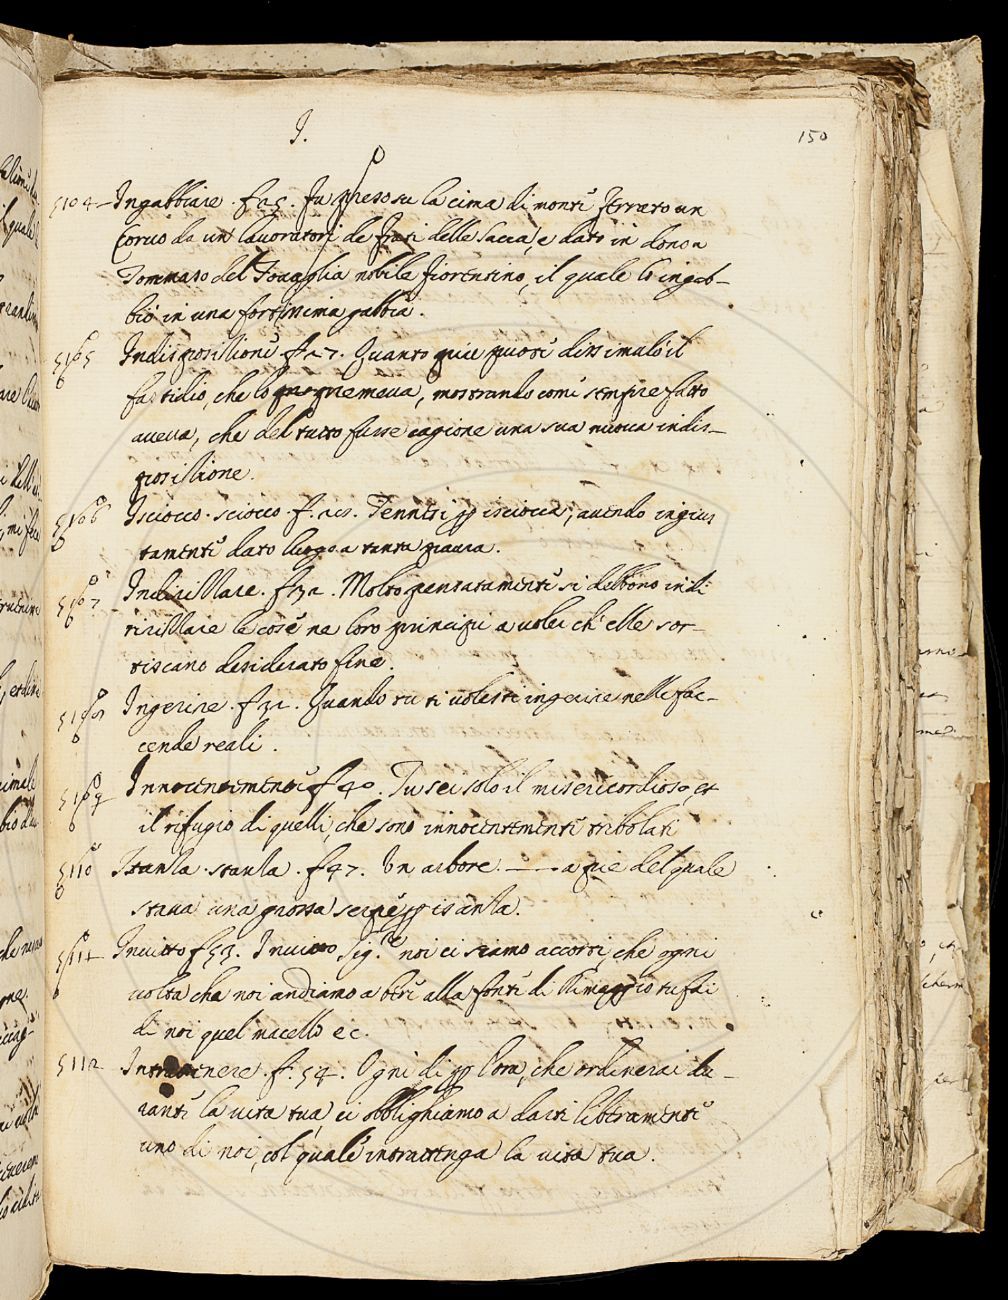 I.
150
5104 Ingabbiare. f. 25. Fu preso su la cima di monte Ferrato un
Corvo da un lavoratore de Frati delle Sacca, e dato in dono a
Tommaso del Tovaglia nobile fiorentino, il quale lo ingab-
biò in una fortissima gabbia.
5105 Indisposizione f. 27. Quanto più puote dissimulò il
fastidio, che lo premeva, mostrando come sempre fatto
aveva, che del tutto fusse cagione una sua nuova indis-
posizione.
5106 Isciocco. sciocco. f. Tennesi per isciocca, avendo ingius
tamente dato luogo a tanta paura.
5107 Indirizzare. f. Molto pensatamente si debbono indi
rizzare le cose ne loro principii a voler ch' elle sor-
tiscano desiderato fine.
5108 Ingerire. f. Quando tu ti volessi ingerire nelle fac-
cende reali.
5109 Innocentemente f. 40. Tu sei solo il misericordioso, et
il rifugio di quelli, che sono innocentemente tribolati
5110 Istanza. stanza. f. 47. Un arbore. —— a piè del quale
stava una grossa serpe per istanza.
5111 Invitto f. 53. Invitto Sig.re noi ci siamo accorti che ogni
volta che noi andiamo a bere alla fonte di tu fai
di noi quel macello ec.
5112 f. 54. Ogni dì per l'ora, che ordinerai du-
rante la vita tua, ci obblighiamo a darti liberamente
uno di noi, col quale intrattenga la vita tua.